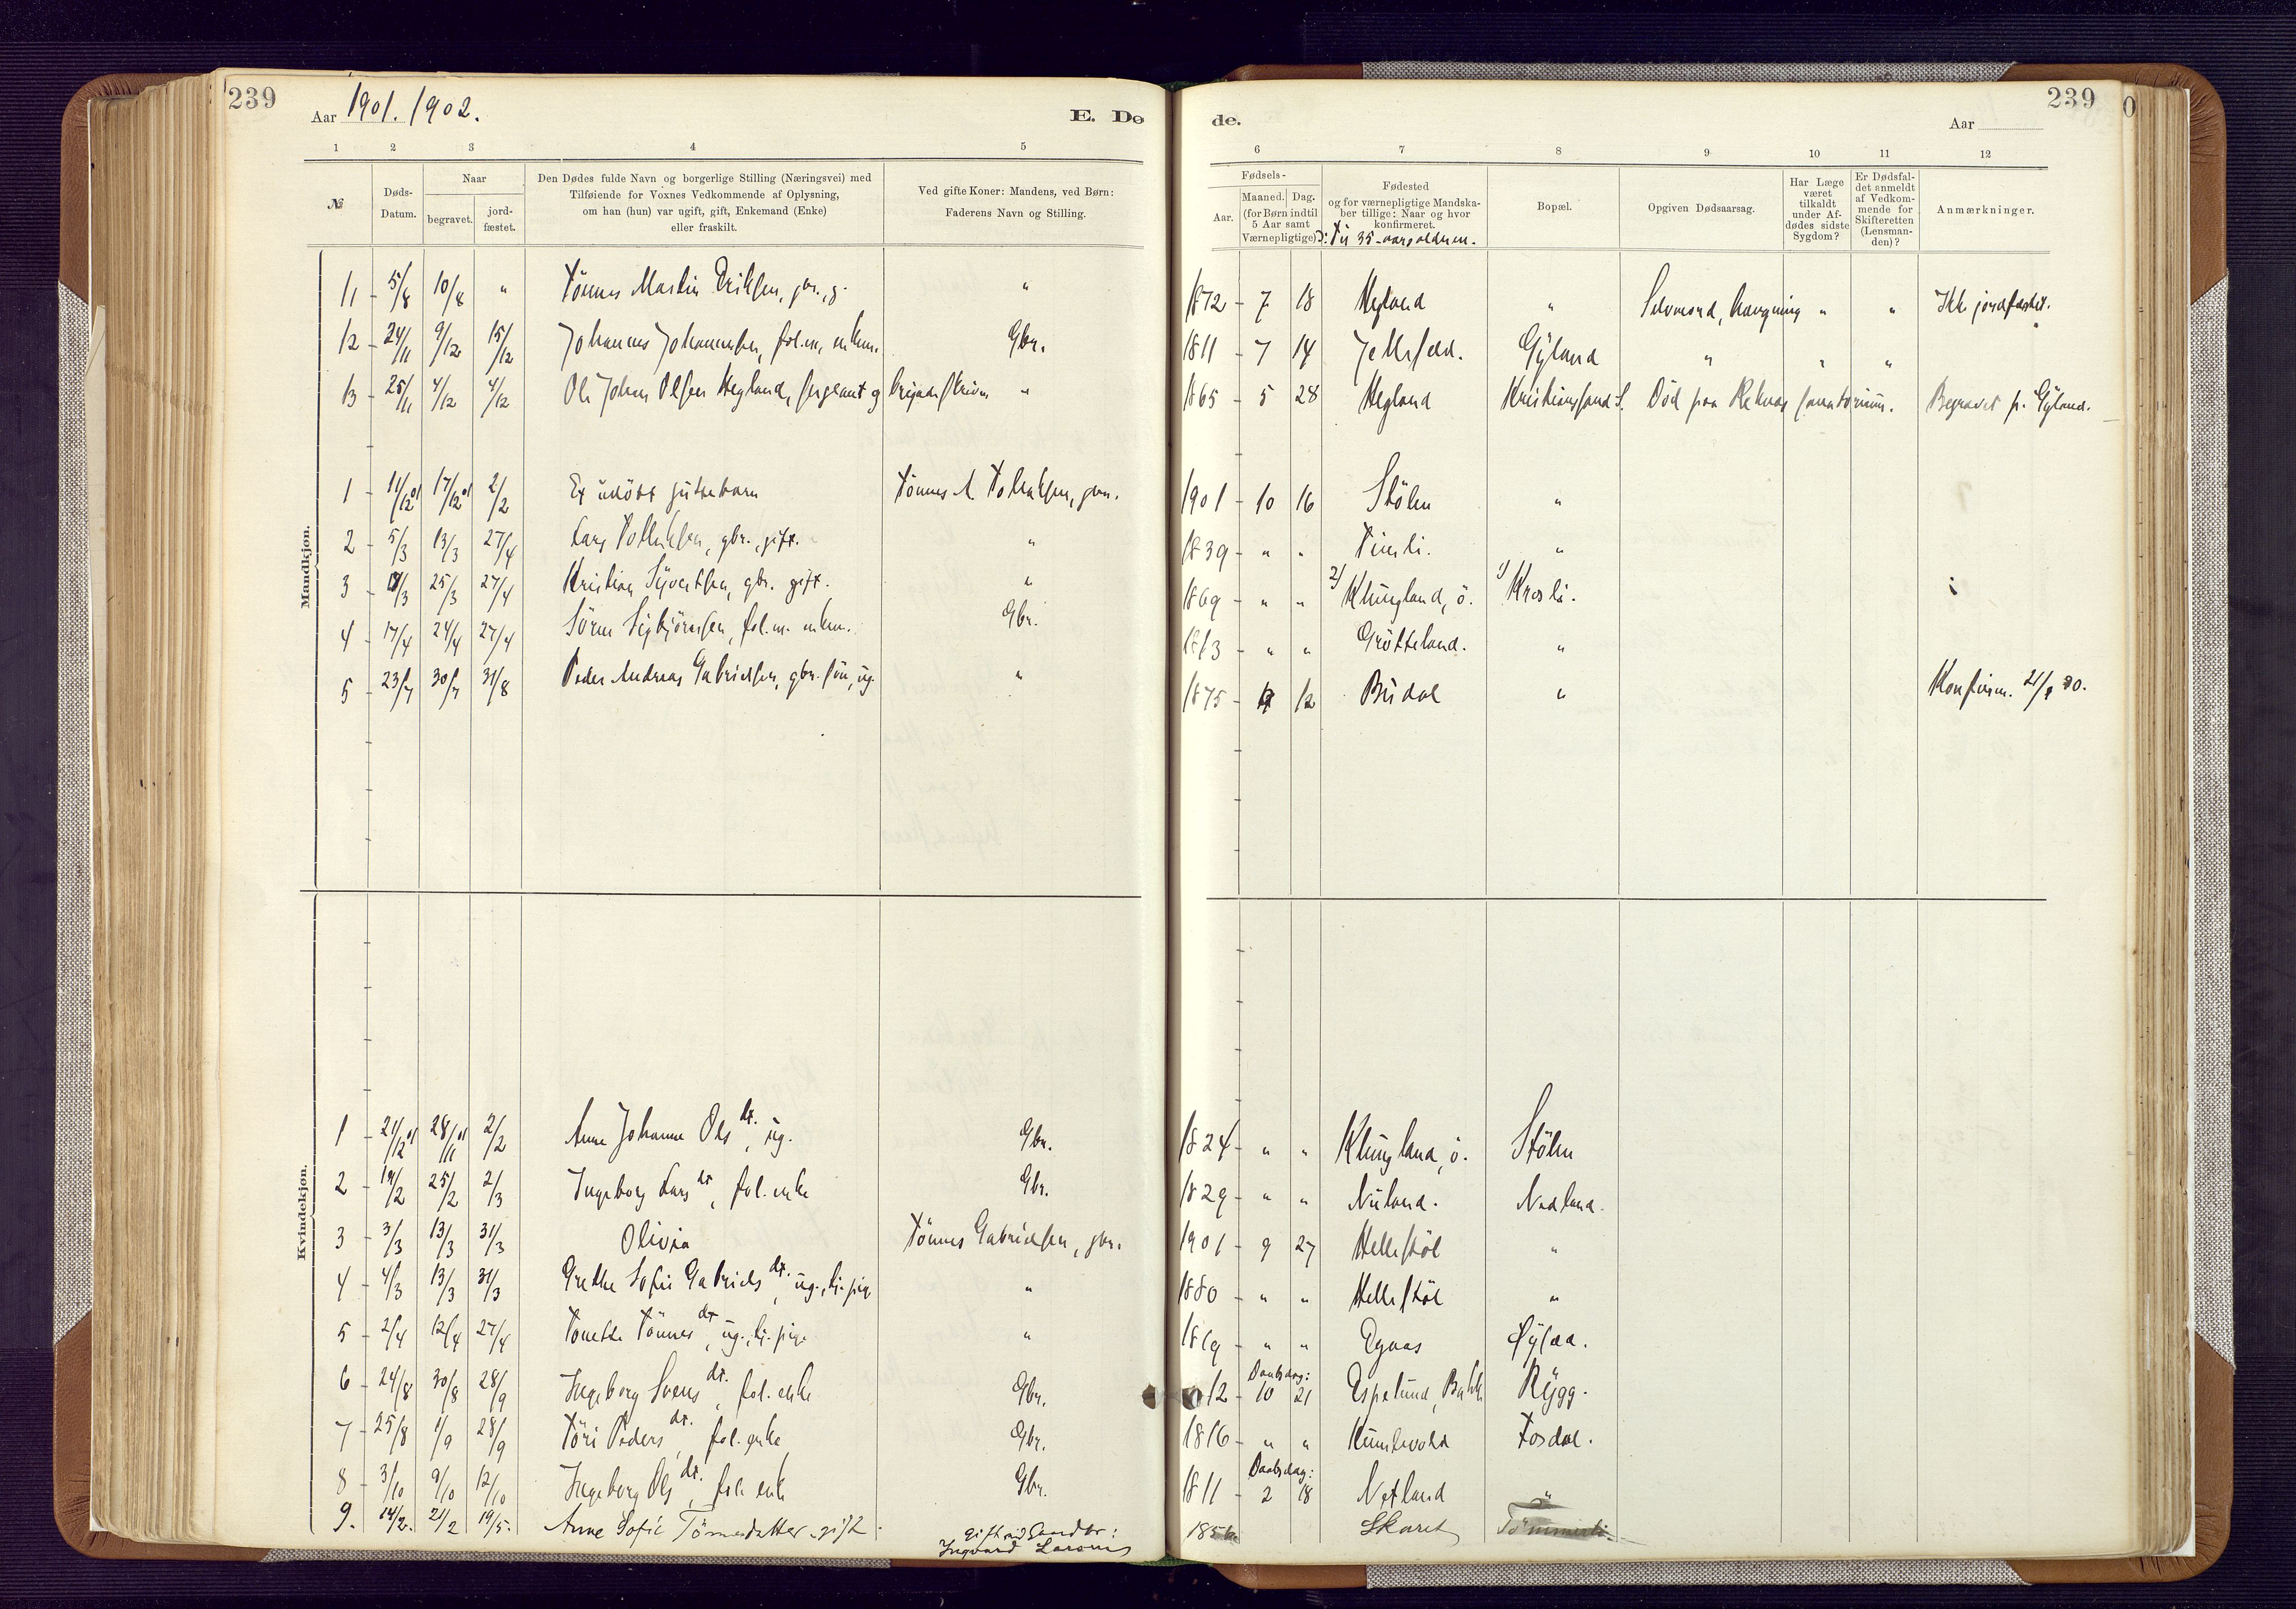 239
Aar 1901. 1902.
E. Dø
de.
239
Aar
0
1 2 3 4 5 6 7 8 9 10 11 12
№
Døds-
Datum.
Naar
begravet.
jord-
fæstet.
Den Dødes fulde Navn og borgerlige Stilling (Næringsvei) med
Tilføiende for Voxnes Vedkommende af Oplysning,
om han (hun) var ugift, gift, Enkemand (Enke)
eller fraskilt.
Ved gifte Koner: Mandens, ved Børn:
Faderens Navn og Stilling.
Fødsels-
Aar.
Maaned. Dag.
(for Børn indtil
5 Aar samt
Værnepligtige)
Fødested
og for værnepligtige Mandska-
ber tillige: Naar og hvor
konfirmeret.
Til 35-aarsalderen.
Bopæl.
Opgiven Dødsaarsag.
Har Læge
været
tilkaldt
under Af-
dødes sidste
Sygdom?
Er Dødsfal-
det anmeldt
af Vedkom-
mende for
Skifteretten
(Lensman-
den)?
Anmærkninger.
Mandkjøn.
11 - 5/8 10/8 " Tönnes Martin Eriksen, gbr., g. " 1872 - 7 18 Hegland " Selvmord, hængning " " Ikke jordfæstet.
12 - 24/11 9/12 15/12 Johannes Johannesen, fol.m, enkem. Gbr. 1811 - 7 14 Gyland " " "
13 - 25/11 4/12 4/12 Ole Johan Olsen Hegland, sergeant og brigadeskriver " 1865 - 5 28 Hegland Kristianssand S. Død paa Reknæs sanatorium. Begravet p. Gyland.
1 - 11/12 01 17/12 01 2/2 Et udöbt guttebarn Tönnes A. gbr. 1901 - 10 16 Stölen "
2 - 5/3 13/3 27/4 Lars Tollaksen, gbr., gift. " 1839 - " " "
3 - 25/3 27/4 Kristian Syvertsen, gbr. gift. " 1869 - " " 2) Klungland, ö. 1) Krosli.
4 - 17/4 24/4 27/4 Sören Sigbjörnsen, fol.m. enkem. Gbr. 1813 - " " Grötteland. "
5 - 23/7 30/7 31/8 Peder Andreas Gabrielsen, gbr. sön, ug. " 1875 - 12 Budal " Konfirm. 21/9 90.
Kvindekjøn.
1 - 21/12 01 28/11 01 2/2 Anne Johanne Olsdt., ug. Gbr. 1824 - " " Klungland, ö. Stölen
2 - 19/2 25/2 2/3 Ingeborg Larsdt, fol. enke Gbr. 1829 - " " Nuland. Nedland.
3 - 3/3 13/3 31/3 Olivia Tönnes Gabrielsen, gbr. 1901 - 9 27 Hellestöl "
4 - 4/3 13/3 31/3 Grethe Sofie Gabrielsdt., ug., tj. pig. " 1880 - " " Hellestöl "
5 - 2/4 12/4 27/4 Tonette Tönnesdt, ug., tj. pige " 1869 - " " Egaas
6 - 24/8 30/8 28/9 Ingeborg Svensdt., fol. enke Gbr. 1812 - Daabsdag: 10 21 Espelund, Bakke Rygg.
7 - 25/8 1/9 28/9 Töri Pedersdt., fol. enke Gbr. 1816 - " " Kumlevold Josdal.
8 - 3/10 9/10 12/10 Ingeborg Olsdt., fol. enke Gbr. 1811 - Daabsdag: 2 18 Netland "
9. 14/2. 21/2 19/5. Anne Sofie Tönnesdatter - gift. gift m. Gaardbr: 1856 Skaret Tömmerli.
Ingvard Larsen